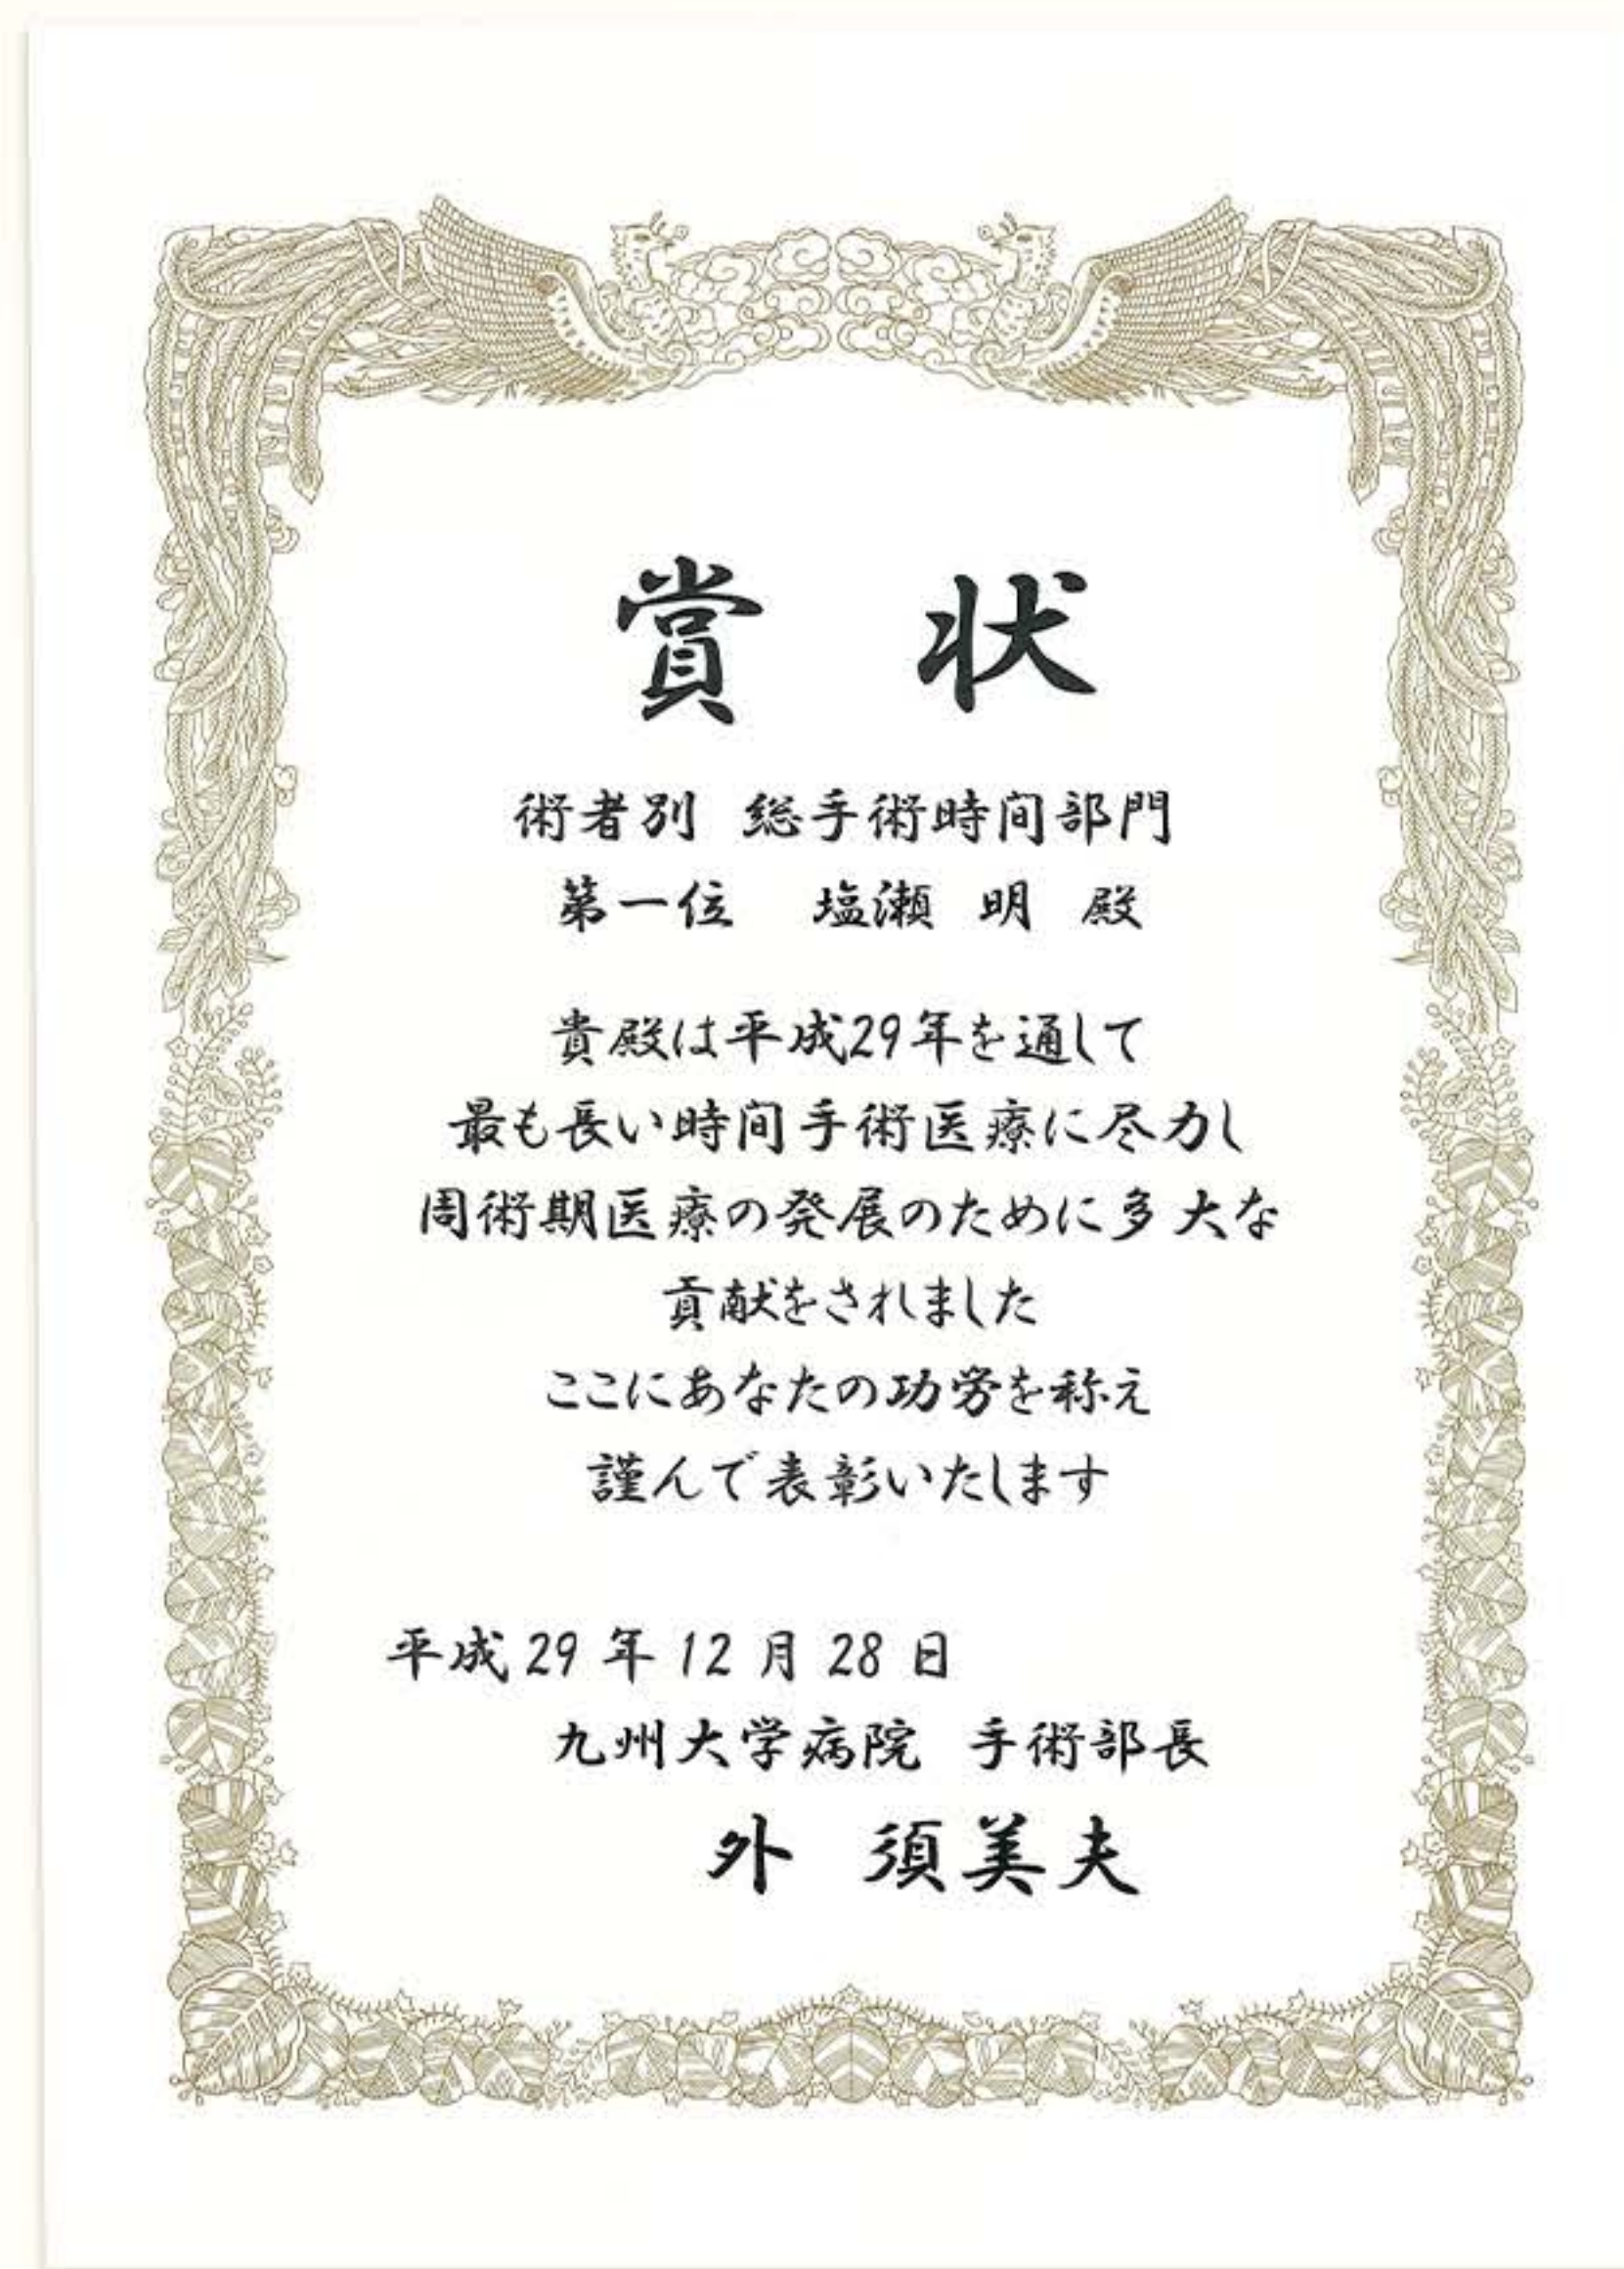 賞 状
術者別 総手術時间部門
第一位 塩瀬 明 殿
貴殿は平成29年を通して
最も長い時间手術医療に尽力し
周術期医療の発展のために多大な
貢献をされました
ここにあなたの功労を称え
謹んで表彰いたします
平成29年12月28日
九州大学病院 手術部長
外 須美夫